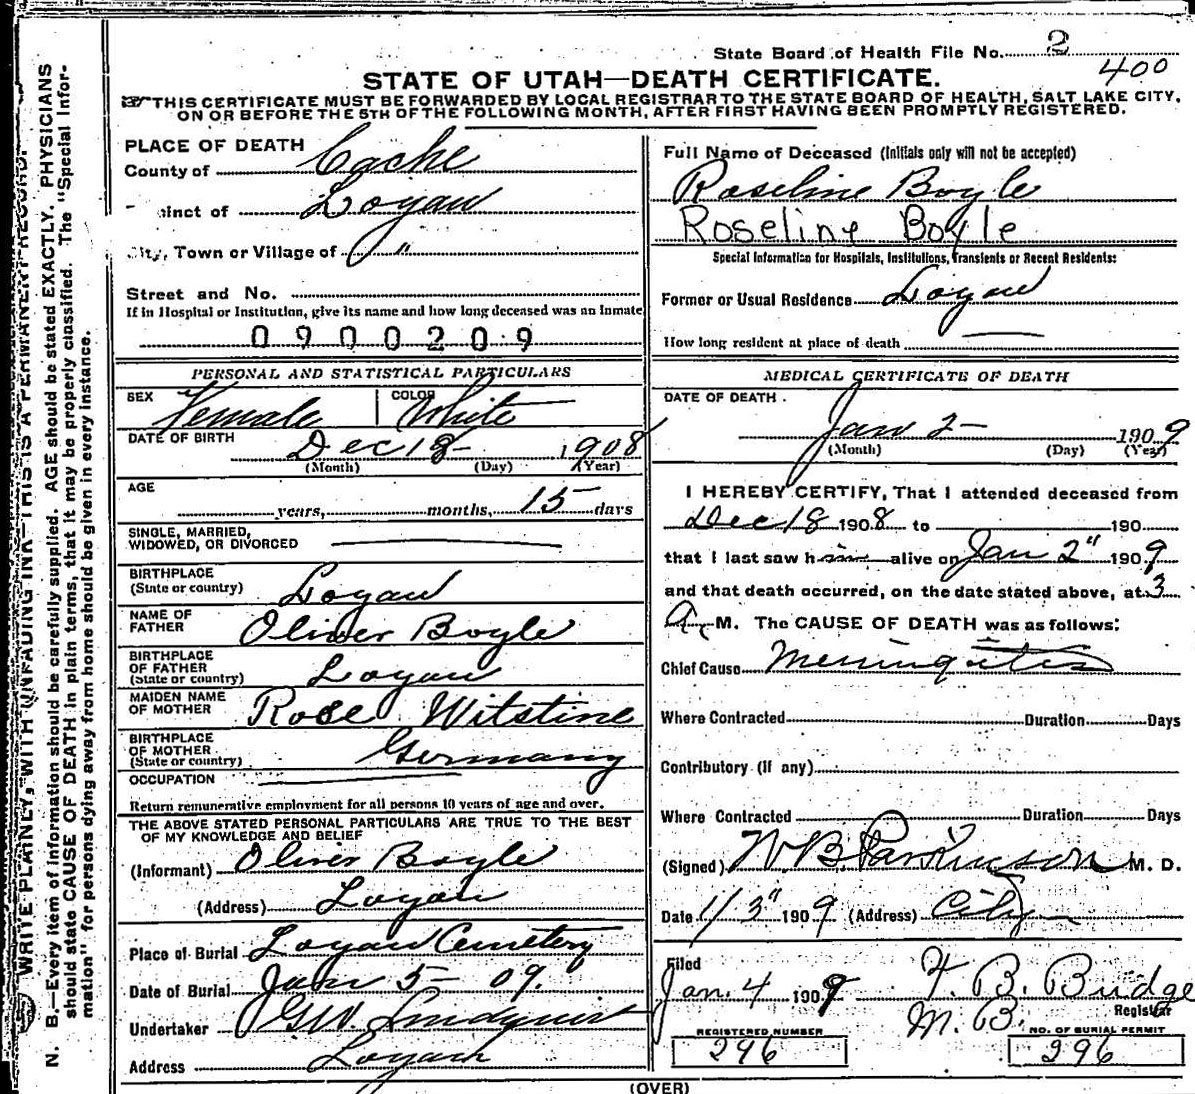 State Board of Health File No. 2
400
STATE OF UTAH—DEATH CERTIFICATE.
THIS CERTIFICATE MUST BE FORWARDED BY LOCAL REGISTRAR TO THE STATE BOARD OF HEALTH, SALT LAKE CITY,
ON OR BEFORE THE 5TH OF THE FOLLOWING MONTH, AFTER FIRST HAVING BEEN PROMPTLY REGISTERED.
WRITE PLAINLY, WITH UNFADING INK—THIS IS A PERMANENT RECORD.
N. B.—Every item of information should be carefully supplied. AGE should be stated EXACTLY. PHYSICIANS
should state CAUSE OF DEATH in plain terms, that it may be properly classified. The "Special Infor-
mation" for persons dying away from home should be given in every instance.
PLACE OF DEATH
County of Cache
inct of Logan
City, Town or Village of "
Street and No.
If in Hospital or Institution, give its name and how long deceased was an Inmate
0900209
PERSONAL AND STATISTICAL PARTICULARS
SEX Female COLOR White
DATE OF BIRTH Dec 18 1908
(Month) (Day) (Year)
AGE
years, months, 15 days
SINGLE, MARRIED,
WIDOWED, OR DIVORCED
BIRTHPLACE
(State or country) Logan
NAME OF
FATHER Oliver Boyle
BIRTHPLACE
OF FATHER
(State or country) Logan
MAIDEN NAME
OF MOTHER Rose Witstine
BIRTHPLACE
OF MOTHER
(State or country) Germany
OCCUPATION
Return remunerative employment for all persons 10 years of age and over.
THE ABOVE STATED PERSONAL PARTICULARS ARE TRUE TO THE BEST
OF MY KNOWLEDGE AND BELIEF
(Informant) Oliver Boyle
(Address) Logan
Place of Burial Logan Cemetery
Date of Burial Jan 5 - 09.
Undertaker GW. Lindquist
Address Logan
Full Name of Deceased (Initials only will not be accepted)
Roseline Boyle
Roseline Boyle
Special Information for Hospitals, Institutions, Transients or Recent Residents:
Former or Usual Residence Logan
How long resident at place of death
MEDICAL CERTIFICATE OF DEATH
DATE OF DEATH.
Jan 2 - 1909
(Month) (Day) (Year)
I HEREBY CERTIFY, That I attended deceased from
Dec 18 1908 to 190
that I last saw him alive on Jan 2" 1909
and that death occurred, on the date stated above, at 3
A. M. The CAUSE OF DEATH was as follows:
Chief Cause Meningitis
Where Contracted Duration Days
Contributory (If any)
Where Contracted Duration Days
(Signed) W B Parkinson M. D.
Date 1/3" 1909 (Address) City
Filed
Jan. 4 1909 F. B. Budge
M. B. Registrar
REGISTERED NUMBER
296
NO. OF BURIAL PERMIT
296
(OVER)